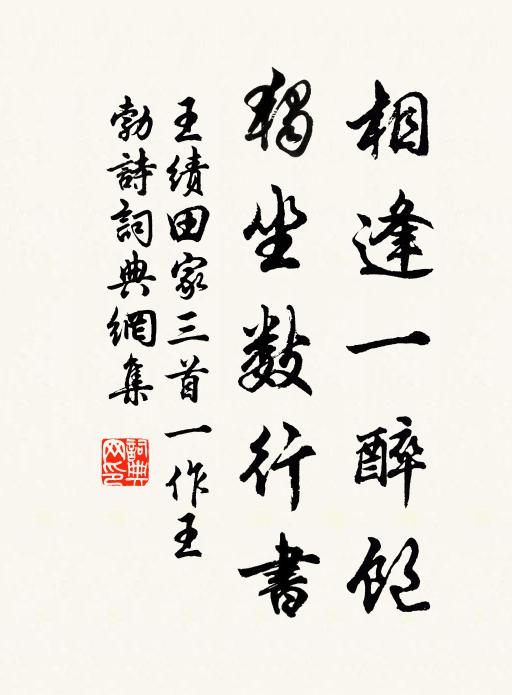 相逢一醉飽
獨坐數行書
王績田家三首一作王
勃詩詞典網集
詞典网印